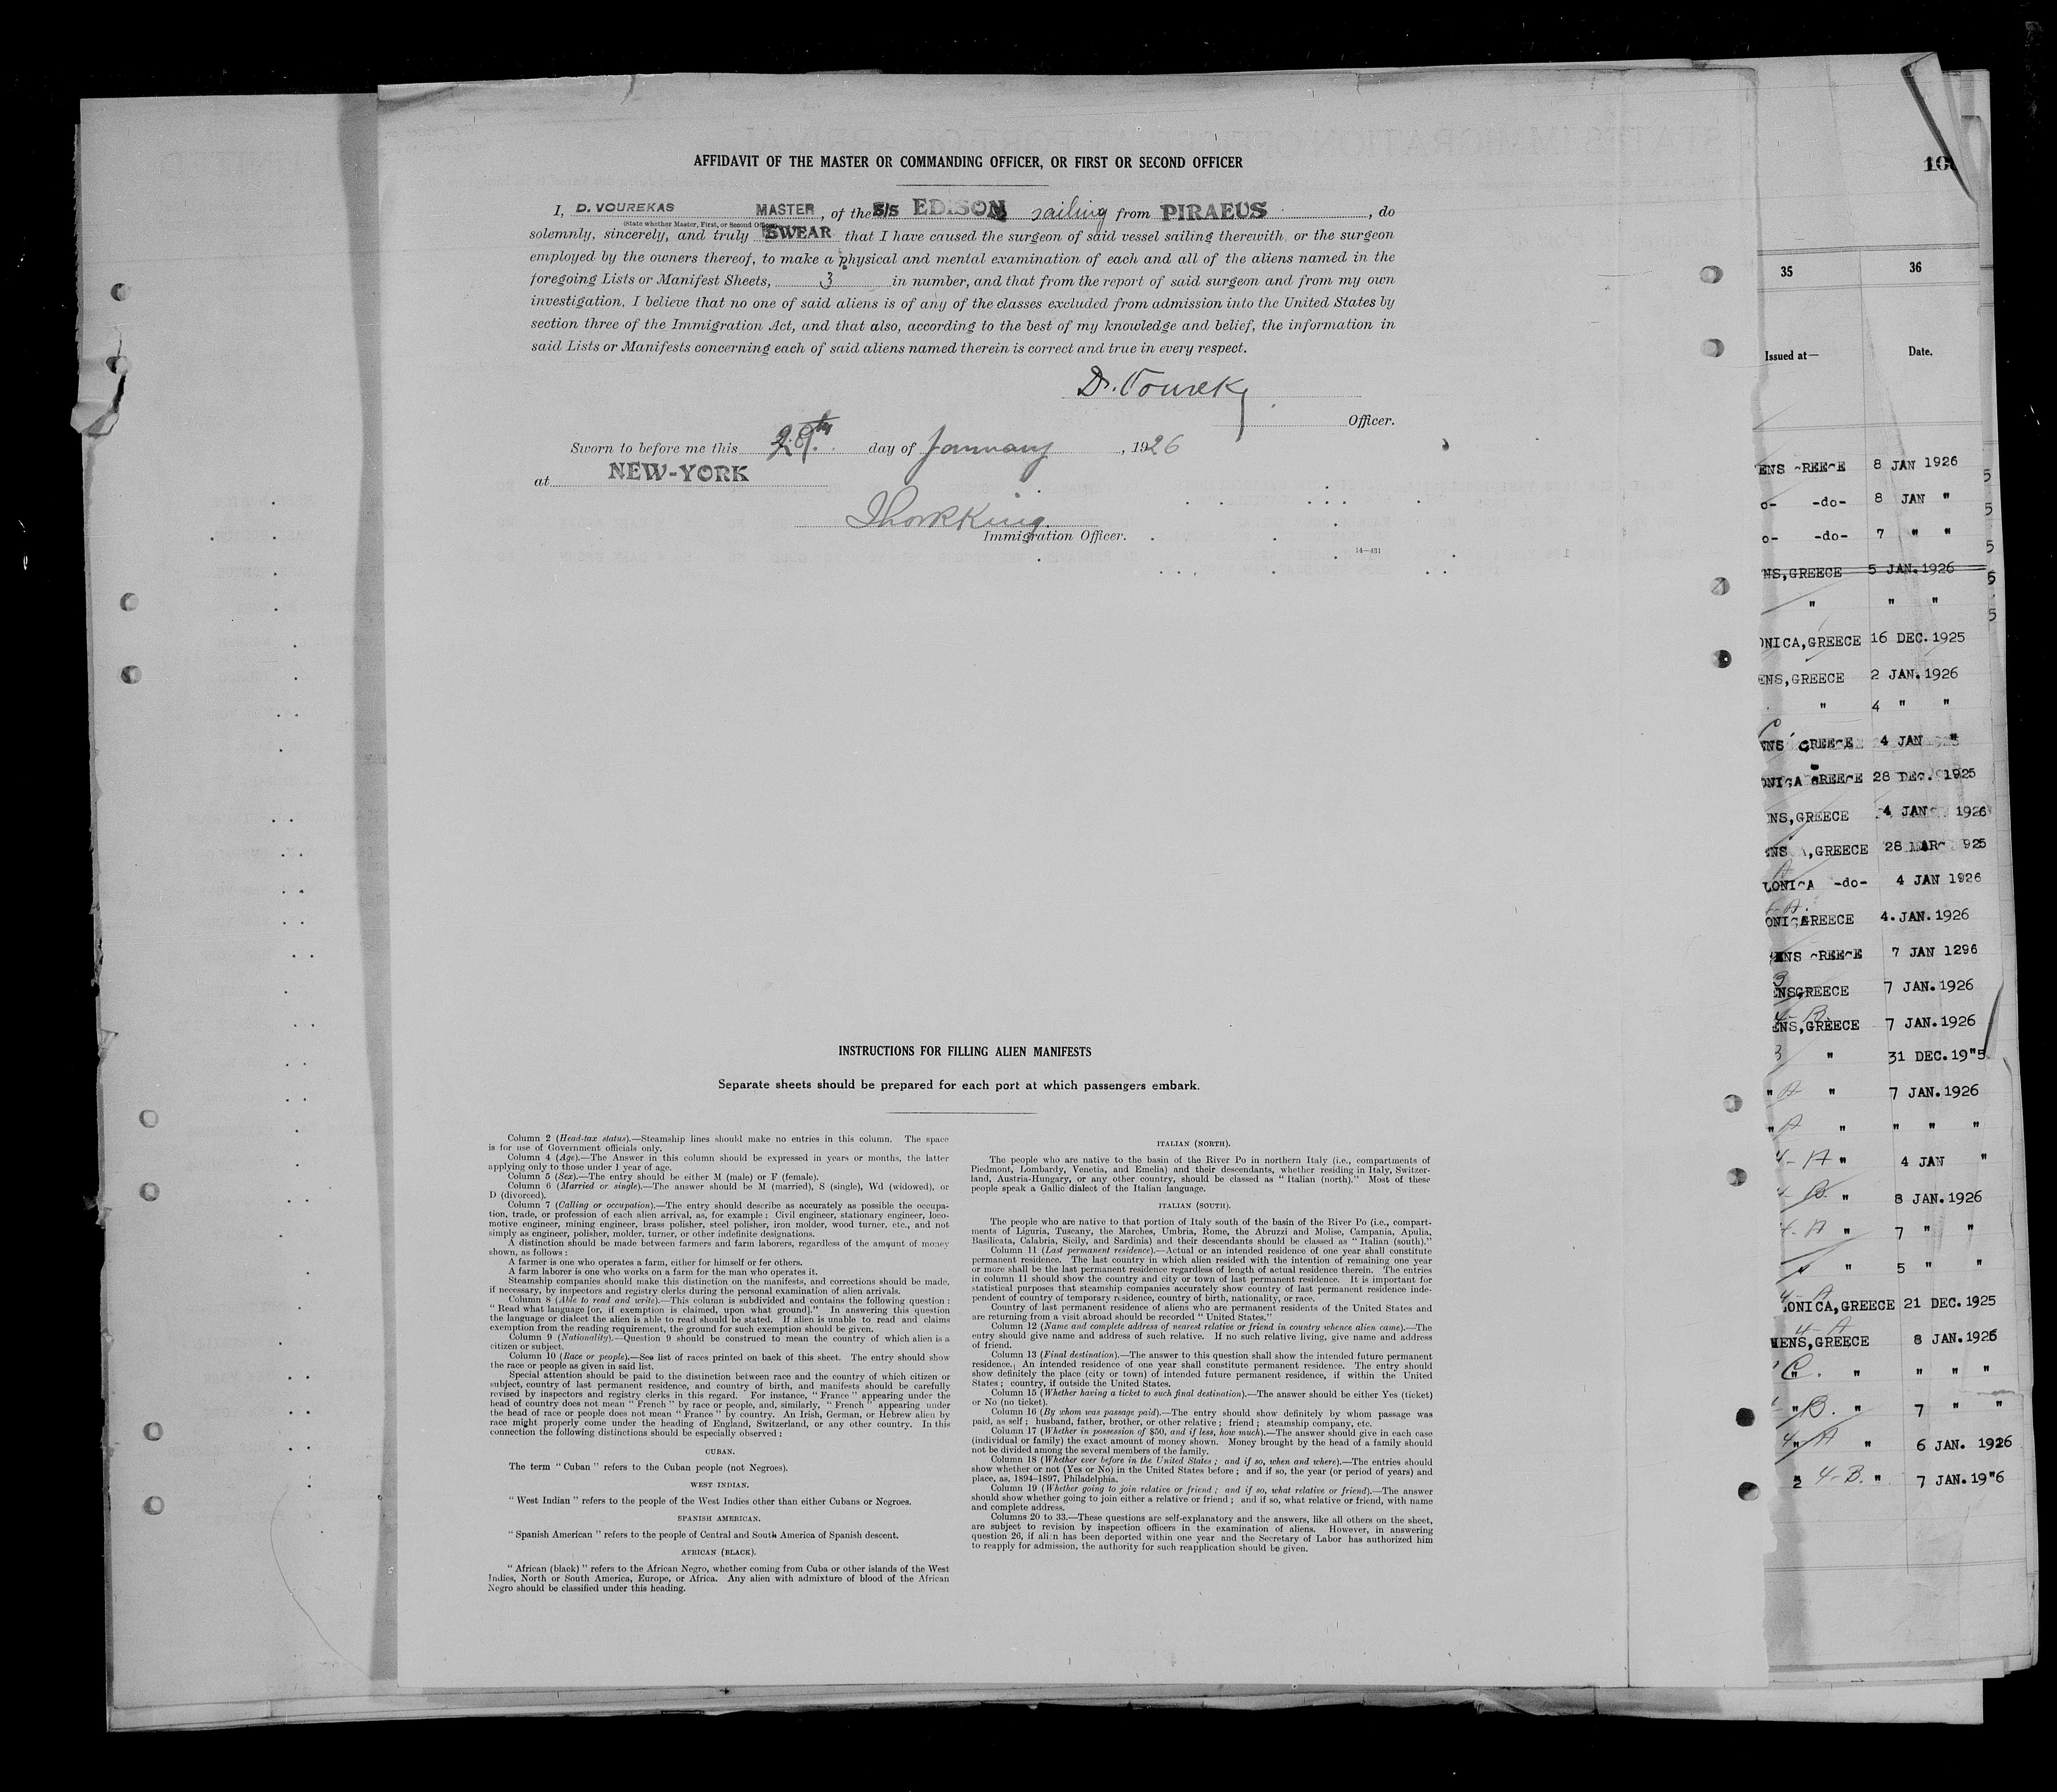 AFFIDAVIT OF THE MASTER OR COMMANDING OFFICER, OR FIRST OR SECOND OFFICER
I, D. VOUREKAS MASTER, of the S/S EDISON sailing from PIRAEUS, do
(State whether Master, First, or Second Officer)
solemnly, sincerely, and truly SWEAR that I have caused the surgeon of said vessel sailing therewith, or the surgeon
employed by the owners thereof, to make a physical and mental examination of each and all of the aliens named in the
foregoing Lists or Manifest Sheets, 3 in number, and that from the report of said surgeon and from my own
investigation, I believe that no one of said aliens is of any of the classes excluded from admission into the United States by
section three of the Immigration Act, and that also, according to the best of my knowledge and belief, the information in
said Lists or Manifests concerning each of said aliens named therein is correct and true in every respect.
Officer.
Sworn to before me this day of January, 1926
at NEW-YORK
Immigration Officer.
14—431
INSTRUCTIONS FOR FILLING ALIEN MANIFESTS
Separate sheets should be prepared for each port at which passengers embark.
Column 2 (Head-tax status).—Steamship lines should make no entries in this column. The space
is for use of Government officials only.
Column 4 (Age).—The Answer in this column should be expressed in years or months, the latter
applying only to those under 1 year of age.
Column 5 (Sex).—The entry should be either M (male) or F (female).
Column 6 (Married or single).—The answer should be M (married), S (single), Wd (widowed), or
D (divorced).
Column 7 (Calling or occupation).—The entry should describe as accurately as possible the occupa-
tion, trade, or profession of each alien arrival, as, for example: Civil engineer, stationary engineer, loco-
motive engineer, mining engineer, brass polisher, steel polisher, iron molder, wood turner, etc., and not
simply as engineer, polisher, molder, turner, or other indefinite designations.
A distinction should be made between farmers and farm laborers, regardless of the amount of money
shown, as follows:
A farmer is one who operates a farm, either for himself or for others.
A farm laborer is one who works on a farm for the man who operates it.
Steamship companies should make this distinction on the manifests, and corrections should be made,
if necessary, by inspectors and registry clerks during the personal examination of alien arrivals.
Column 8 (Able to read and write).—This column is subdivided and contains the following question:
"Read what language [or, if exemption is claimed, upon what ground]." In answering this question
the language or dialect the alien is able to read should be stated. If alien is unable to read and claims
exemption from the reading requirement, the ground for such exemption should be given.
Column 9 (Nationality).—Question 9 should be construed to mean the country of which alien is a
citizen or subject.
Column 10 (Race or people).—See list of races printed on back of this sheet. The entry should show
the race or people as given in said list.
Special attention should be paid to the distinction between race and the country of which citizen or
subject, country of last permanent residence, and country of birth, and manifests should be carefully
revised by inspectors and registry clerks in this regard. For instance, "France" appearing under the
head of country does not mean "French" by race or people, and, similarly, "French" appearing under
the head of race or people does not mean "France" by country. An Irish, German, or Hebrew alien by
race might properly come under the heading of England, Switzerland, or any other country. In this
connection the following distinctions should be especially observed:
CUBAN.
The term "Cuban" refers to the Cuban people (not Negroes).
WEST INDIAN.
"West Indian" refers to the people of the West Indies other than either Cubans or Negroes.
SPANISH AMERICAN.
"Spanish American" refers to the people of Central and South America of Spanish descent.
AFRICAN (BLACK).
"African (black)" refers to the African Negro, whether coming from Cuba or other islands of the West
Indies, North or South America, Europe, or Africa. Any alien with admixture of blood of the African
Negro should be classified under this heading.
ITALIAN (NORTH).
The people who are native to the basin of the River Po in northern Italy (i.e., compartments of
Piedmont, Lombardy, Venetia, and Emelia) and their descendants, whether residing in Italy, Switzer-
land, Austria-Hungary, or any other country, should be classed as "Italian (north)." Most of these
people speak a Gallic dialect of the Italian language.
ITALIAN (SOUTH).
The people who are native to that portion of Italy south of the basin of the River Po (i.e., compart-
ments of Liguria, Tuscany, the Marches, Umbria, Rome, the Abruzzi and Molise, Campania, Apulia,
Basilicata, Calabria, Sicily, and Sardinia) and their descendants should be classed as "Italian (south)."
Column 11 (Last permanent residence).—Actual or an intended residence of one year shall constitute
permanent residence. The last country in which alien resided with the intention of remaining one year
or more shall be the last permanent residence regardless of length of actual residence therein. The entries
in column 11 should show the country and city or town of last permanent residence. It is important for
statistical purposes that steamship companies accurately show country of last permanent residence inde-
pendent of country of temporary residence, country of birth, nationality, or race.
Country of last permanent residence of aliens who are permanent residents of the United States and
are returning from a visit abroad should be recorded "United States."
Column 12 (Name and complete address of nearest relative or friend in country whence alien came).—The
entry should give name and address of such relative. If no such relative living, give name and address
of friend.
Column 13 (Final destination).—The answer to this question shall show the intended future permanent
residence. An intended residence of one year shall constitute permanent residence. The entry should
show definitely the place (city or town) of intended future permanent residence, if within the United
States; country, if outside the United States.
Column 15 (Whether having a ticket to such final destination).—The answer should be either Yes (ticket)
or No (no ticket).
Column 16 (By whom was passage paid).—The entry should show definitely by whom passage was
paid, as self; husband, father, brother, or other relative; friend; steamship company, etc.
Column 17 (Whether in possession of $50, and if less, how much).—The answer should give in each case
(individual or family) the exact amount of money shown. Money brought by the head of a family should
not be divided among the several members of the family.
Column 18 (Whether ever before in the United States; and if so, when and where).—The entries should
show whether or not (Yes or No) in the United States before; and if so, the year (or period of years) and
place, as, 1894–1897, Philadelphia.
Column 19 (Whether going to join relative or friend; and if so, what relative or friend).—The answer
should show whether going to join either a relative or friend; and if so, what relative or friend, with name
and complete address.
Columns 20 to 33.—These questions are self-explanatory and the answers, like all others on the sheet,
are subject to revision by inspection officers in the examination of aliens. However, in answering
question 26, if alien has been deported within one year and the Secretary of Labor has authorized him
to reapply for admission, the authority for such reapplication should be given.
35 36
Issued at— Date.
ENS GREECE 8 JAN 1926
o- -do- 8 JAN "
o- -do- 7 " "
NS,GREECE 5 JAN.1926
" " "
ONICA,GREECE 16 DEC.1925
ENS,GREECE 2 JAN.1926
" 4 " "
ENS GREECE 4 JAN "
ONICA GREECE 28 DEC. 1925
ENS,GREECE 4 JAN 1926
,GREECE 28 925
LONICA -do- 4 JAN 1926
ONICA GREECE 4.JAN.1926
ENS GREECE 7 JAN 1296
ENSGREECE 7 JAN.1926
ENS,GREECE 7 JAN.1926
3 " 31 DEC.19"5
" A " 7 JAN.1926
" A " " " "
4-A " 4 JAN "
4-B. " 8 JAN.1926
4-A " 7 " "
" " 5 " "
LONICA,GREECE 21 DEC.1925
HENS,GREECE 8 JAN.1926
" C. " " " "
" B. " 7 " "
4-A " 6 JAN. 1926
4-B. " 7 JAN.19"6